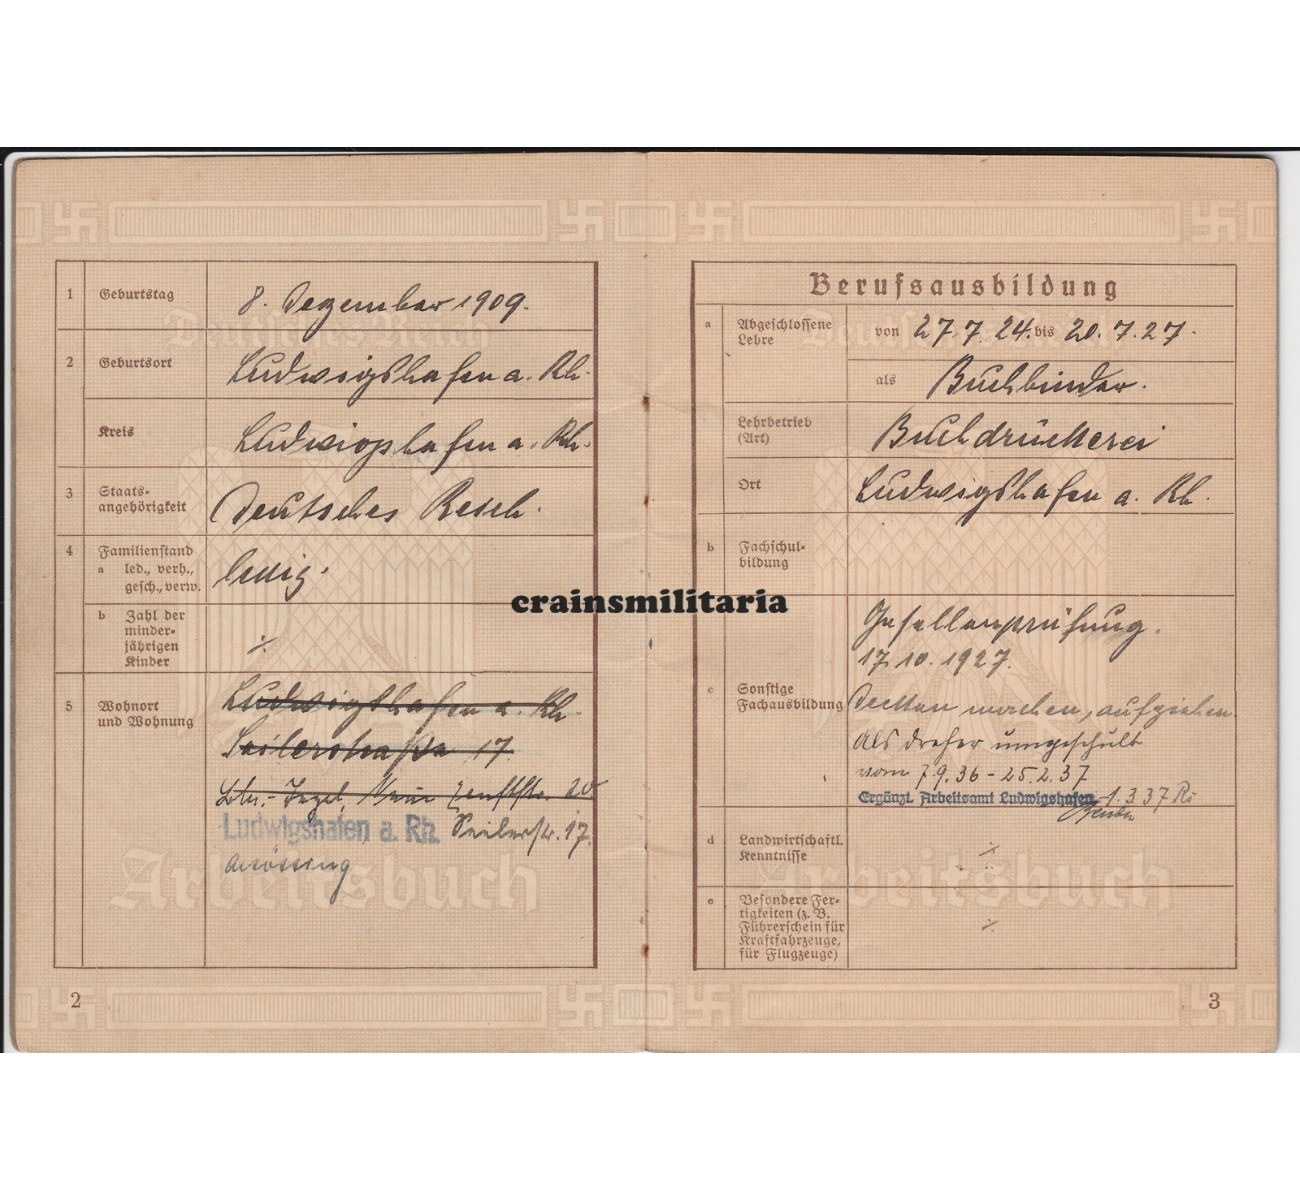 1 Geburtstag 8. Dezember 1909.
Deutsches Reich
2 Geburtsort Ludwigshafen a. Rh.
Kreis Ludwigshafen a. Rh.
3 Staats-
angehörigkeit Deutsches Reich.
4 Familienstand
a led., verh.,
gesch., verw. ledig.
b Zahl der
minder-
jährigen
Kinder ·/.
5 Wohnort
und Wohnung
Ludwigshafen a. Rh.
Seilerstraße 17
20
Ludwigshafen a. Rh. Seilerstr. 17.
Arbeitsbuch
2
Berufsausbildung
a Abgeschlossene
Lehre von 27.7.24. bis 20.7.27.
Deutsches Reich
als Buchbinder.
Lehrbetrieb
(Art) Buchdruckerei
Ort Ludwigshafen a. Rh.
b Fachschul-
bildung
crainsmilitaria
c Sonstige
Fachausbildung
Gesellenprüfung.
17.10.1927.
Decken machen, aufziehen.
Als Dreher umgeschult
vom 7.9.36 - 25.2.37
Ergänzt Arbeitsamt Ludwigshafen 1.3.37
d Landwirtschaftl.
Kenntnisse ·/.
Arbeitsbuch
e Besondere Fer-
tigkeiten (z. B.
Führerschein für
Kraftfahrzeuge,
für Flugzeuge) ·/.
3